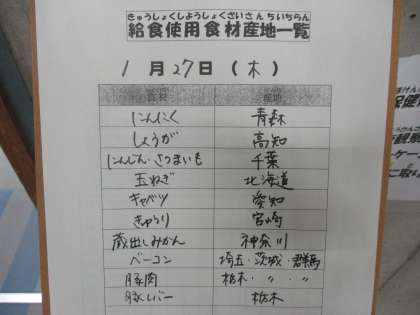 きゅうしょくしようしょくざいさんちいちらん
給食使用食材産地一覧
1月27日(木)
食材 産地
にんにく 青森
しょうが 高知
にんじん・さつまいも 千葉
玉ねぎ 北海道
キャベツ 愛知
きゅうり 宮崎
蔵出しみかん 神奈川
ベーコン 埼玉・茨城・群馬
豚肉 栃木・〃・〃
豚レバー 栃木